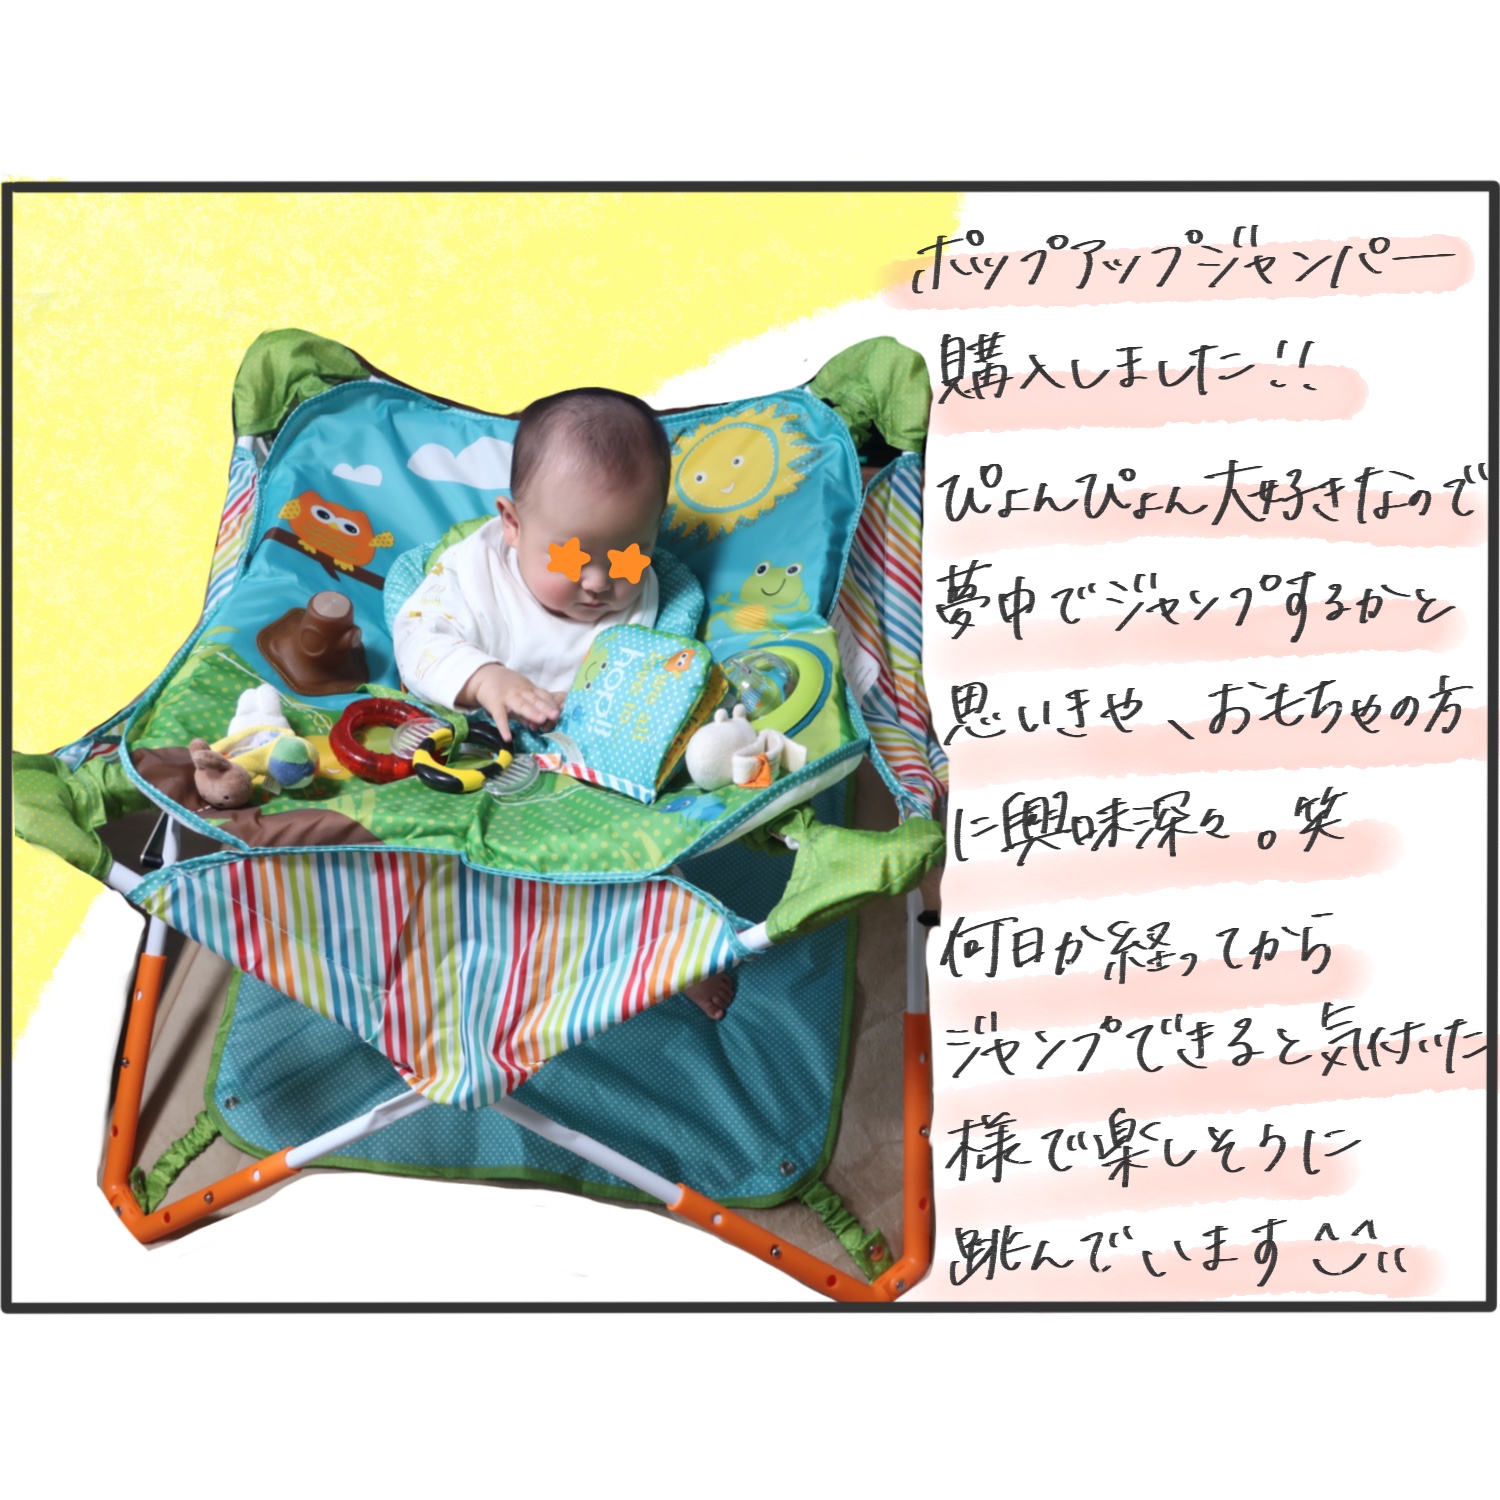 ポップアップジャンパー
購入しました!!
ぴょんぴょん大好きなので
夢中でジャンプするかと
思いきや、おもちゃの方
に興味深々。笑
何日か経ってから
ジャンプできると気付いた
様で楽しそうに
跳んでいます
hoppi